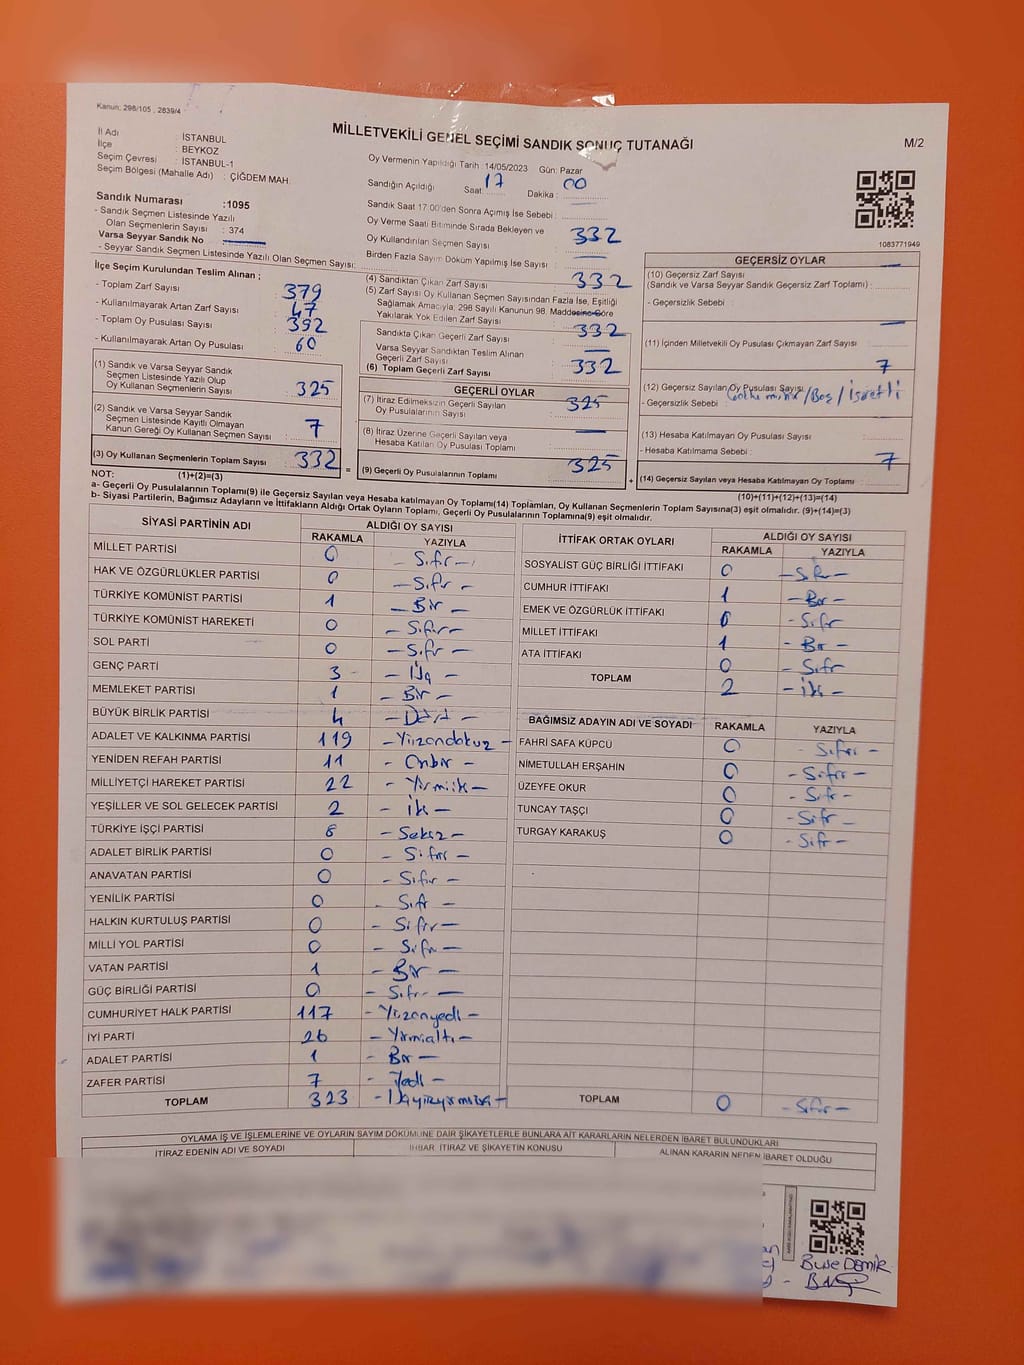 Kanun; 298/105 , 2839/4
MİLLETVEKİLİ GENEL SEÇİMİ SANDIK SONUÇ TUTANAĞI
M/2
İl Adı : İSTANBUL
İlçe : BEYKOZ
Seçim Çevresi : İSTANBUL-1
Seçim Bölgesi (Mahalle Adı) : ÇİĞDEM MAH.
Sandık Numarası :1095
- Sandık Seçmen Listesinde Yazılı
Olan Seçmenlerin Sayısı : 374
Varsa Seyyar Sandık No :
- Seyyar Sandık Seçmen Listesinde Yazılı Olan Seçmen Sayısı:
Oy Vermenin Yapıldığı Tarih :14/05/2023 Gün: Pazar
Sandığın Açıldığı Saat: 17 Dakika : 00
Sandık Saat 17:00'den Sonra Açımış İse Sebebi :
Oy Verme Saati Bitiminde Sırada Bekleyen ve
Oy Kullandırılan Seçmen Sayısı : 332
Birden Fazla Sayım Döküm Yapılmış İse Sayısı :
1083771949
İlçe Seçim Kurulundan Teslim Alınan ;
- Toplam Zarf Sayısı : 379
- Kullanılmayarak Artan Zarf Sayısı : 47
- Toplam Oy Pusulası Sayısı : 392
- Kullanılmayarak Artan Oy Pusulası : 60
(1) Sandık ve Varsa Seyyar Sandık
Seçmen Listesinde Yazılı Olup
Oy Kullanan Seçmenlerin Sayısı : 325
(2) Sandık ve Varsa Seyyar Sandık
Seçmen Listesinde Kayıtlı Olmayan
Kanun Gereği Oy Kullanan Seçmen Sayısı : 7
(3) Oy Kullanan Seçmenlerin Toplam Sayısı : 332 =
(1)+(2)=(3)
(4) Sandıktan Çıkan Zarf Sayısı : 332
(5) Zarf Sayısı Oy Kullanan Seçmen Sayısından Fazla İse, Eşitliği
Sağlamak Amacıyla; 298 Sayılı Kanunun 98. Maddesine Göre
Yakılarak Yok Edilen Zarf Sayısı :
Sandıkta Çıkan Geçerli Zarf Sayısı : 332
Varsa Seyyar Sandıktan Teslim Alınan
Geçerli Zarf Sayısı :
(6) Toplam Geçerli Zarf Sayısı : 332
GEÇERLİ OYLAR
(7) İtiraz Edilmeksizin Geçerli Sayılan
Oy Pusulalarının Sayısı : 325
(8) İtiraz Üzerine Geçerli Sayılan veya
Hesaba Katılan Oy Pusulaları Toplamı :
(9) Geçerli Oy Pusulalarının Toplamı : 325 +
GEÇERSİZ OYLAR
(10) Geçersiz Zarf Sayısı
(Sandık ve Varsa Seyyar Sandık Geçersiz Zarf Toplamı) :
- Geçersizlik Sebebi :
(11) İçinden Milletvekili Oy Pusulası Çıkmayan Zarf Sayısı :
(12) Geçersiz Sayılan Oy Pusulası Sayısı : 7
- Geçersizlik Sebebi : /Boş/İşaretli
(13) Hesaba Katılmayan Oy Pusulası Sayısı :
- Hesaba Katılmama Sebebi :
(14) Geçersiz Sayılan veya Hesaba Katılmayan Oy Toplamı : 7
(10)+(11)+(12)+(13)=(14)
NOT:
a- Geçerli Oy Pusulalarının Toplamı(9) ile Geçersiz Sayılan veya Hesaba katılmayan Oy Toplamı(14) Toplamları, Oy Kullanan Seçmenlerin Toplam Sayısına(3) eşit olmalıdır. (9)+(14)=(3)
b- Siyasi Partilerin, Bağımsız Adayların ve İttifakların Aldığı Ortak Oyların Toplamı, Geçerli Oy Pusulalarının Toplamına(9) eşit olmalıdır.
SİYASİ PARTİNİN ADI ALDIĞI OY SAYISI
RAKAMLA YAZIYLA
MİLLET PARTİSİ 0 - Sıfır -
HAK VE ÖZGÜRLÜKLER PARTİSİ 0 - Sıfır -
TÜRKİYE KOMÜNİST PARTİSİ 1 - Bir -
TÜRKİYE KOMÜNİST HAREKETİ 0 - Sıfır -
SOL PARTİ 0 - Sıfır -
GENÇ PARTİ 3 - Üç -
MEMLEKET PARTİSİ 1 - Bir -
BÜYÜK BİRLİK PARTİSİ 4 - Dört -
ADALET VE KALKINMA PARTİSİ 119 - Yüzondokuz -
YENİDEN REFAH PARTİSİ 11 - Onbir -
MİLLİYETÇİ HAREKET PARTİSİ 22 - Yirmiiki -
YEŞİLLER VE SOL GELECEK PARTİSİ 2 - İki -
TÜRKİYE İŞÇİ PARTİSİ 8 - Sekiz -
ADALET BİRLİK PARTİSİ 0 - Sıfır -
ANAVATAN PARTİSİ 0 - Sıfır -
YENİLİK PARTİSİ 0 - Sıfır -
HALKIN KURTULUŞ PARTİSİ 0 - Sıfır -
MİLLİ YOL PARTİSİ 0 - Sıfır -
VATAN PARTİSİ 1 - Bir -
GÜÇ BİRLİĞİ PARTİSİ 0 - Sıfır -
CUMHURİYET HALK PARTİSİ 117 - Yüzonyedi -
İYİ PARTİ 26 - Yirmialtı -
ADALET PARTİSİ 1 - Bir -
ZAFER PARTİSİ 7 - Yedi -
TOPLAM 323 - Üçyüzyirmiüç -
İTTİFAK ORTAK OYLARI ALDIĞI OY SAYISI
RAKAMLA YAZIYLA
SOSYALİST GÜÇ BİRLİĞİ İTTİFAKI 0 - Sıfır -
CUMHUR İTTİFAKI 1 - Bir -
EMEK VE ÖZGÜRLÜK İTTİFAKI 0 - Sıfır
MİLLET İTTİFAKI 1 - Bir -
ATA İTTİFAKI 0 - Sıfır
TOPLAM 2 - İki -
BAĞIMSIZ ADAYIN ADI VE SOYADI RAKAMLA YAZIYLA
FAHRİ SAFA KÜPCÜ 0 - Sıfır -
NİMETULLAH ERŞAHİN 0 - Sıfır -
ÜZEYFE OKUR 0 - Sıfır -
TUNCAY TAŞÇI 0 - Sıfır -
TURGAY KARAKUŞ 0 - Sıfır -
TOPLAM 0 - Sıfır -
OYLAMA İŞ VE İŞLEMLERİNE VE OYLARIN SAYIM DÖKÜMÜNE DAİR ŞİKAYETLERLE BUNLARA AİT KARARLARIN NELERDEN İBARET BULUNDUKLARI
İTİRAZ EDENİN ADI VE SOYADI İHBAR, İTİRAZ VE ŞİKAYETİN KONUSU ALINAN KARARIN NEDEN İBARET OLDUĞU
Buse Demir